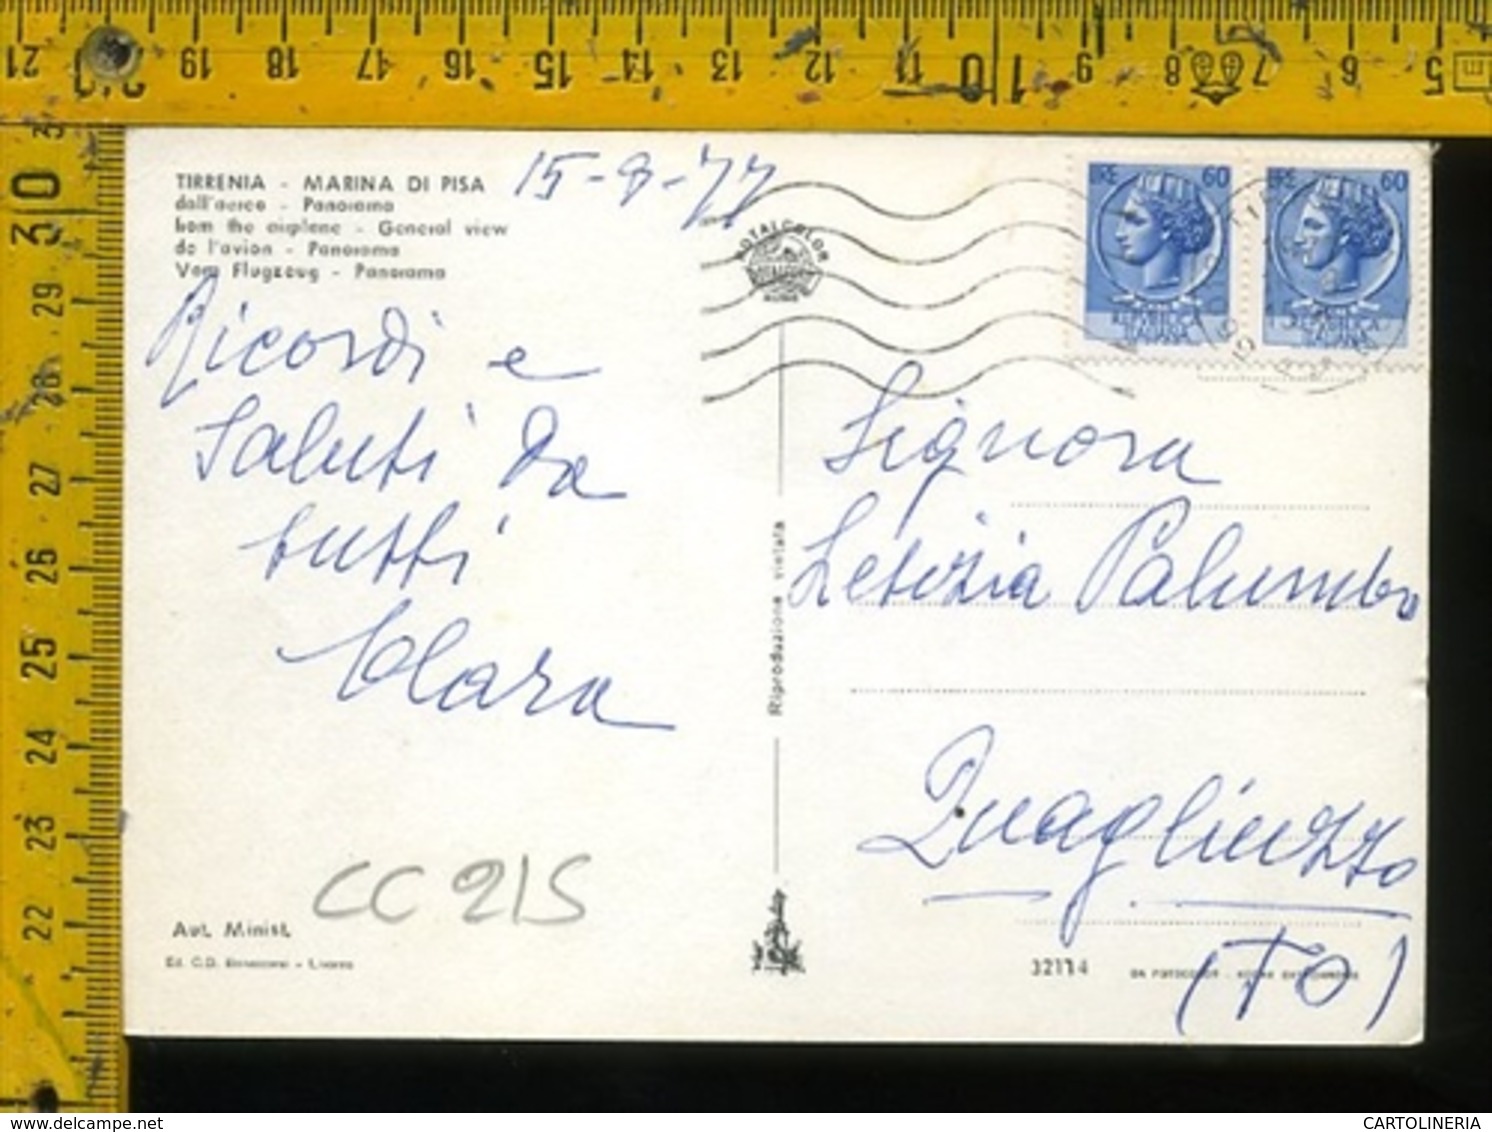 21 20 19 18 17 16 15 14 13 12 11 10 9 8 7 6 5
30
29
28
27
26
25
24
23
22
TIRRENIA - MARINA DI PISA
dall'aereo - Panorama
from the aiplane - General view
de l'avion - Panorama
Vom Flugzeug - Panorama
15-8-77
ROTALCOLOR
LIRE 60
REPUBBLICA
ITALIANA
LIRE 60
REPUBBLICA
ITALIANA
Ricordi e
Saluti da
tutti
Clara
Signora
Letizia Palumbo
Quagliuzzo
(TO)
Riproduzione vietata
CC 215
Aut. Minist.
Ed. C.D. - Livorno
32114
DA FOTOCOLOR - KODAK EKTACHROME
delcampe.net
CARTOLINERIA